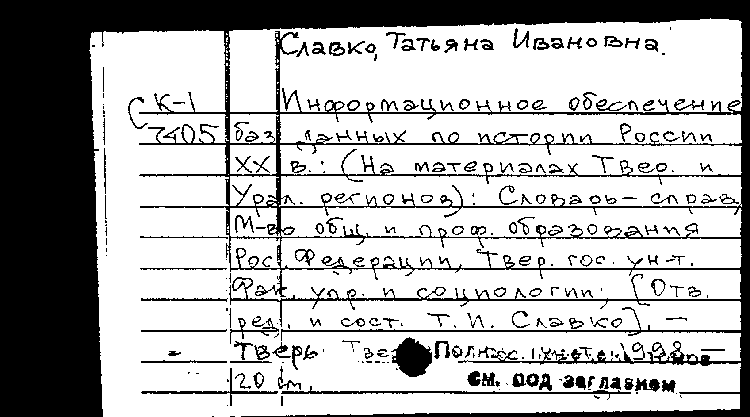 Славко, Татьяна Ивановна.
К-1 Информационное обеспечение
7405 баз данных по истории России
XX в.: (На материалах Твер. и
Урал. регионов): Словарь-справ.
М-во общ. и проф. образования
Рос. Федерации, Твер. гос. ун-т.
Фак. упр. и социологии; [Отв.
ред. и сост. Т. И. Славко]. —
Тверь: 1998 —
20 см.
см. под заглавием